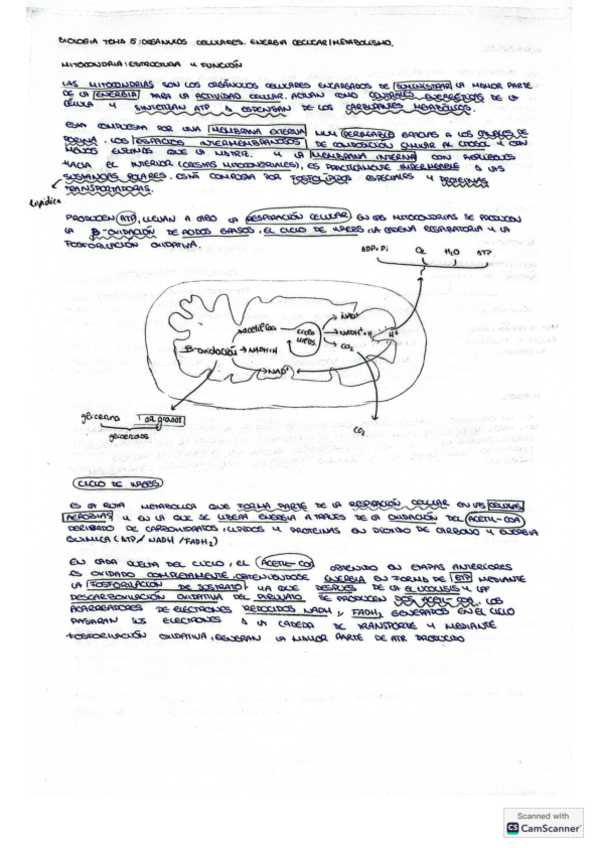 BIOLOGIA TEMA 5: ORGÁNULOS CELULARES. ENERGIA CELULAR/METABOLISMO.
MITOCONDRIA: ESTRUCTURA Y FUNCIÓN
LAS MITOCONDRIAS SON LOS ORGÁNULOS CELULARES ENCARGADOS DE SUMINISTRAR LA MAYOR PARTE
DE LA ENERGIA PARA LA ACTIVIDAD CELULAR. ACTUAN COMO CENTRALES ENERGÉTICAS DE LA
CÉLULA Y SINTETIZAN ATP A EXPENSAS DE LOS CARBURANTES METABÓLICOS.
ESTA COMPUESTA POR UNA MEMBRANA EXTERNA MUY PERMEABLE GRACIAS A LOS
PORINA. LOS ESPACIOS INTERMEMBRANOSOS DE COMPOSICIÓN SIMILAR AL CITOSOL Y CON
MENOS ENZIMAS QUE LA MATRIZ. Y LA MEMBRANA INTERNA CON REPLIEGUES
HACIA EL INTERIOR (CRESTAS MITOCONDRIALES), ES PRACTICAMENTE IMPERMEABLE A LAS
SUSTANCIAS POLARES. ESTÁ COMPUESTA POR FOSFOLÍPIDOS ESPECIALES Y PROTEINAS
TRANSPORTADORAS.
Lipídica
PRODUCEN ATP, LLEVAN A CABO LA RESPIRACIÓN CELULAR EN LAS MITOCONDRIAS SE PRODUCEN
LA β-OXIDACIÓN DE ACIDOS GRASOS, EL CICLO DE KREBS, LA CADENA RESPIRATORIA Y LA
FOSFORILACIÓN OXIDATIVA.
ADP+Pi O2 H2O ATP
NAD+
acetilCoA ciclo Krebs NADH+H H+
β-oxidación NADH+H CO2
NAD+
glicerina ac grasos
CO2
CICLO DE KREBS
ES LA RUTA METABOLICA QUE FORMA PARTE DE LA RESPIRACIÓN CELULAR EN LAS CÉLULAS
AEROBIAS Y EN LA QUE SE LIBERA ENERGIA A TRAVES DE LA OXIDACIÓN DEL ACETIL-COA
DERIVADO DE CARBOHIDRATOS, LIPIDOS Y PROTEINAS EN DIOXIDO DE CARBONO Y ENERGIA
QUIMICA (ATP/NADH/FADH2)
EN CADA VUELTA DEL CICLO, EL ACETIL-COA OBTENIDO EN ETAPAS ANTERIORES
ES OXIDADO COMPLETAMENTE, OBTENIENDOSE ENERGIA EN FORMA DE ATP MEDIANTE
LA FOSFORILACION DE SUSTRATO, YA QUE DESPUES DE LA GLUCOLISIS Y LA
DESCARBOXILACIÓN OXIDATIVA DEL PIRUVATO SE PRODUCEN DOS ACETIL-COA. LOS
ACARREADORES DE ELECTRONES REDUCIDOS NADH Y FADH2 GENERADOS EN EL CICLO
PASARAN SUS ELECTRONES A LA CADENA DE TRANSPORTE Y MEDIANTE
FOSFORILACIÓN OXIDATIVA, GENERAN LA MAYOR PARTE DE ATP PRODUCIDO
Scanned with
CS CamScanner